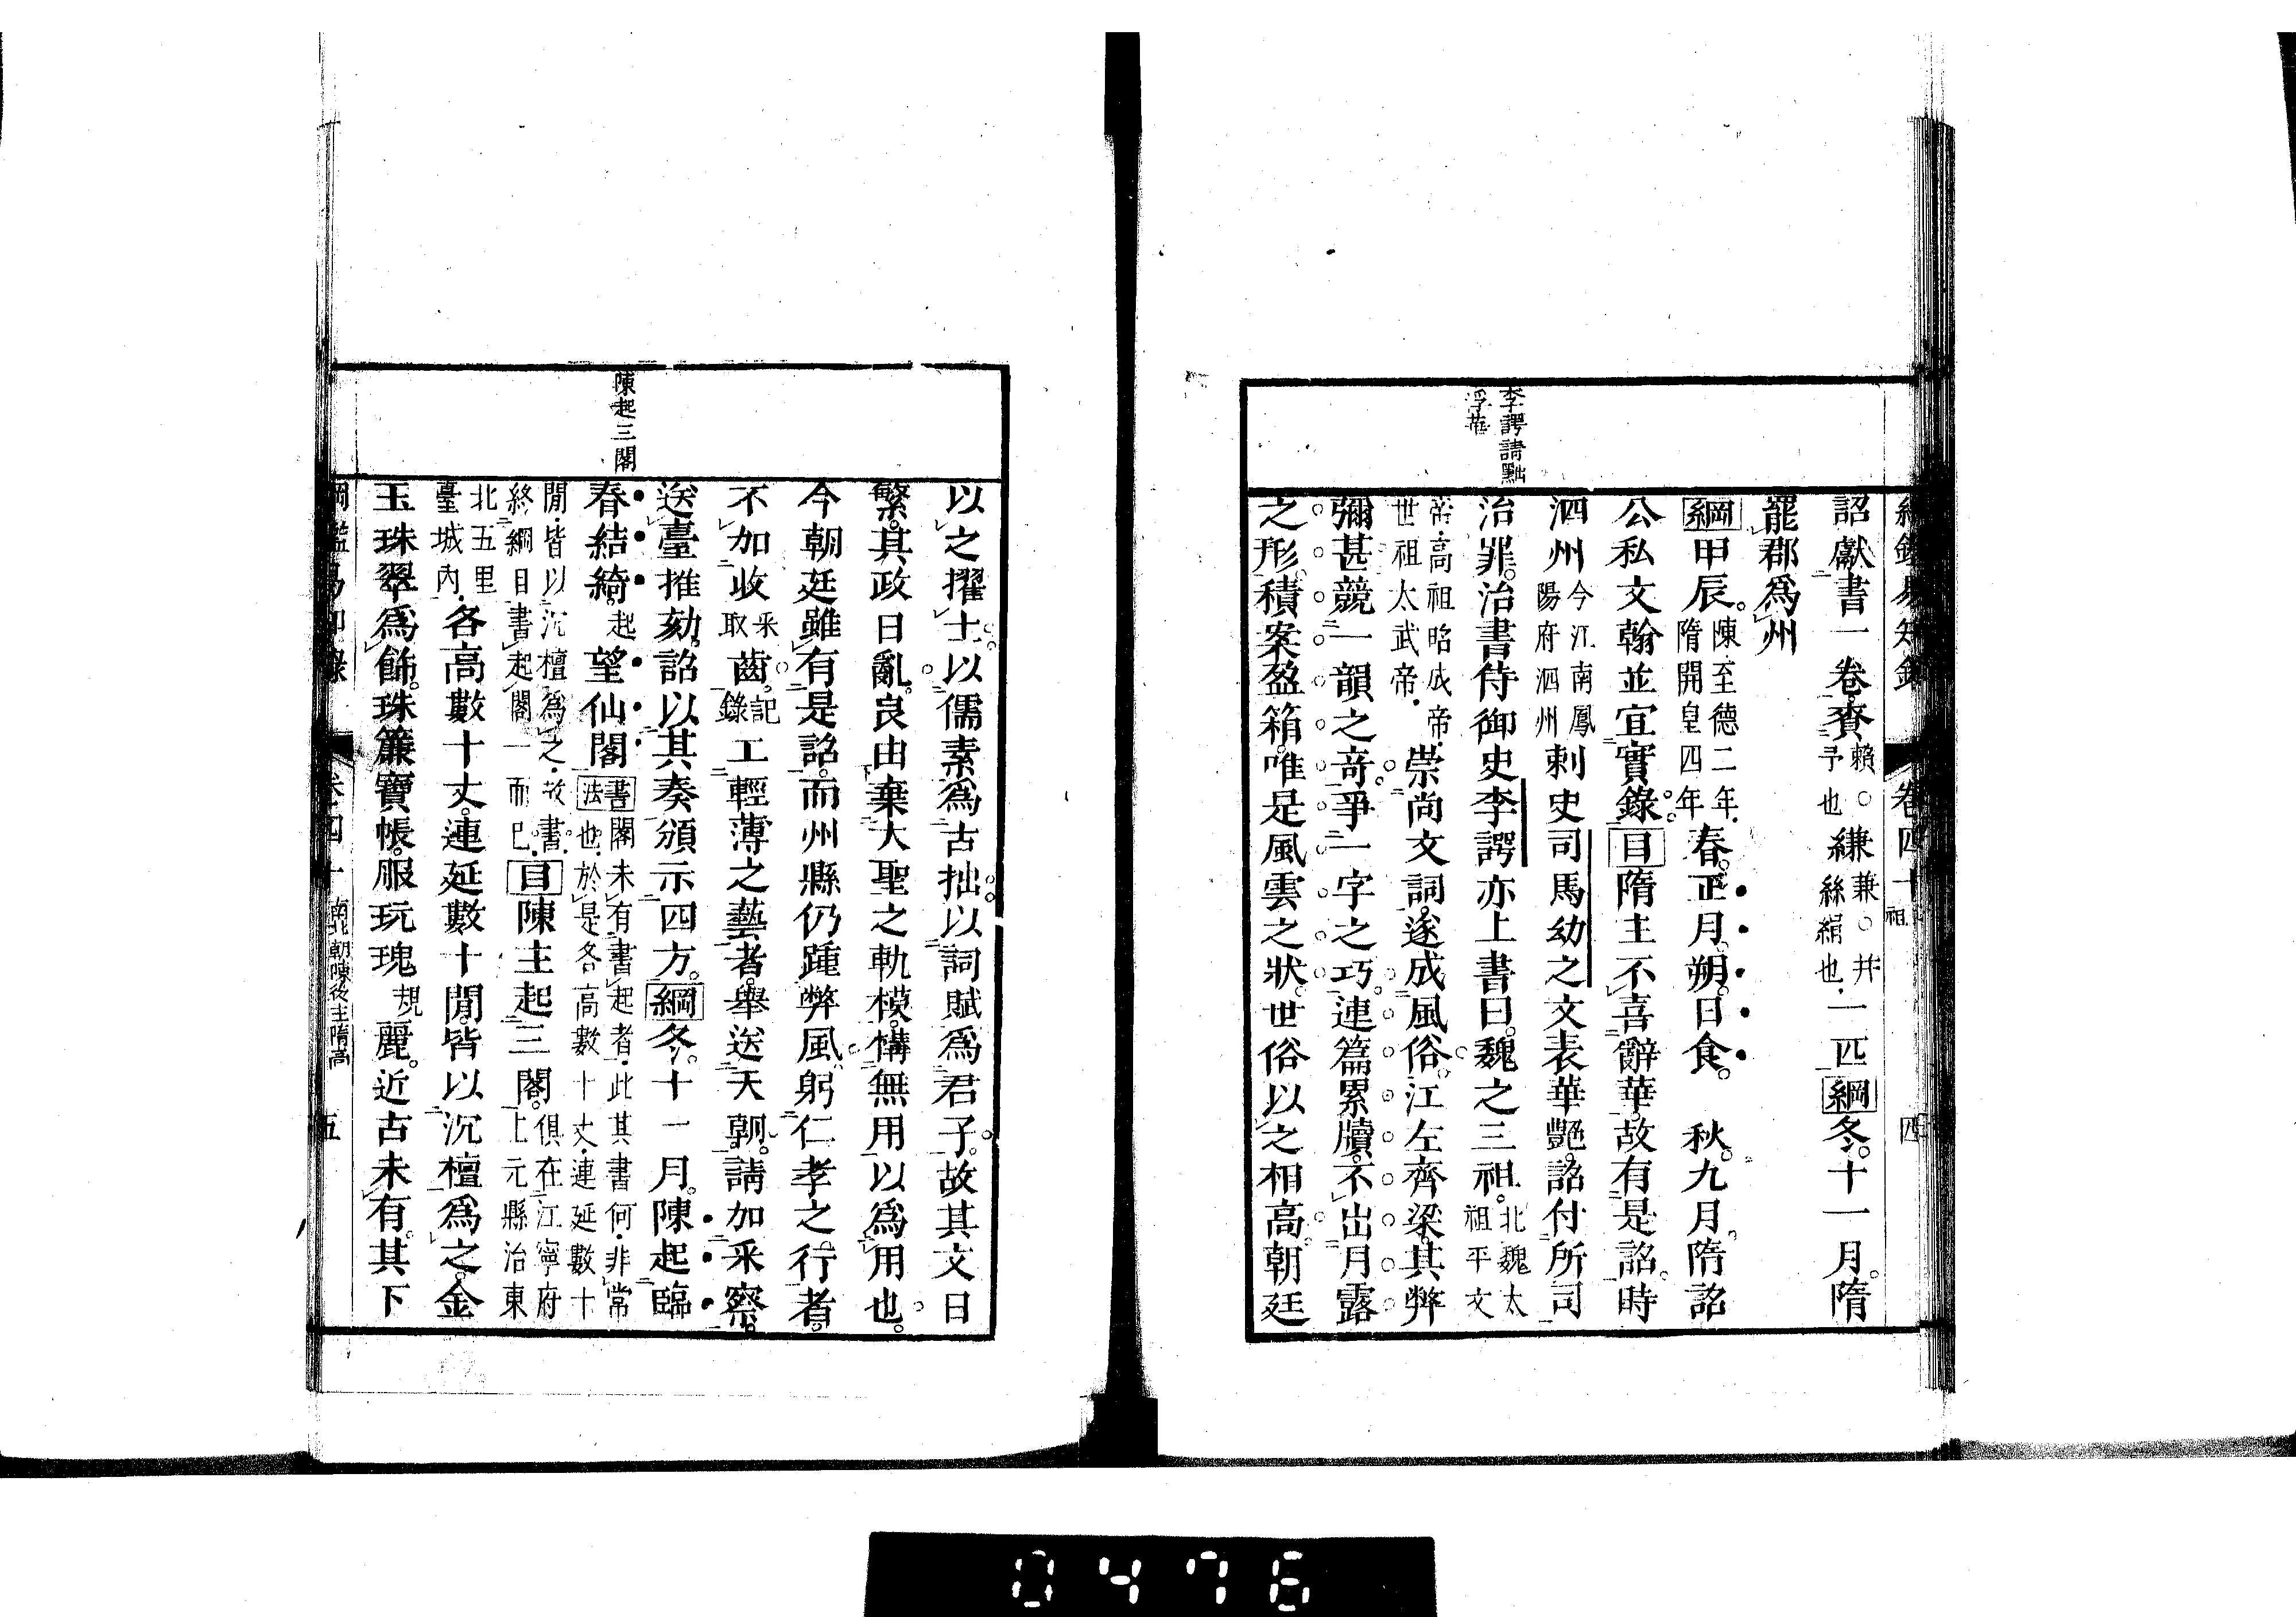 卷四十
四
李諤請黜
浮華
詔獻書一卷賚賴○予也縑兼○幷絲絹也一匹綱冬十一月隋
罷郡爲州
綱甲辰陳至德二年隋開皇四年春正月朔日食 秋九月隋詔
公私文翰並宜實錄目隋主不喜辭華故有是詔時
泗州今江南鳳陽府泗州刺史司馬幼之文表華艷詔付所司
治罪治書侍御史李諤亦上書曰魏之三祖北魏太祖平文
帝高祖昭成帝世祖太武帝崇尚文詞遂成風俗江左齊梁其弊
彌甚競一韻之奇爭一字之巧連篇累牘不出月露
之形積案盈箱唯是風雲之狀世俗以之相高朝廷
陳起三閣
以之擢士以儒素爲古拙以詞賦爲君子故其文日
繁其政日亂良由棄大聖之軌模構無用以爲用也
今朝廷雖有是詔而州縣仍踵弊風躬仁孝之行者
不加收采取齒記錄工輕薄之藝者舉送天朝請加采察
送臺推劾詔以其奏頒示四方綱冬十一月陳起臨
春結綺起望仙閣書法閣未有書起者此其書何非常也於是各高數十丈連延數十
閒皆以沉檀爲之故書終綱目書起閣一而已目陳主起三閣俱在江寧府上元縣治東
北五里臺城內各高數十丈連延數十閒皆以沉檀爲之金
玉珠翠爲飾珠簾寶帳服玩瑰規麗近古未有其下
卷四十 南北朝陳後主隋高
五
0476